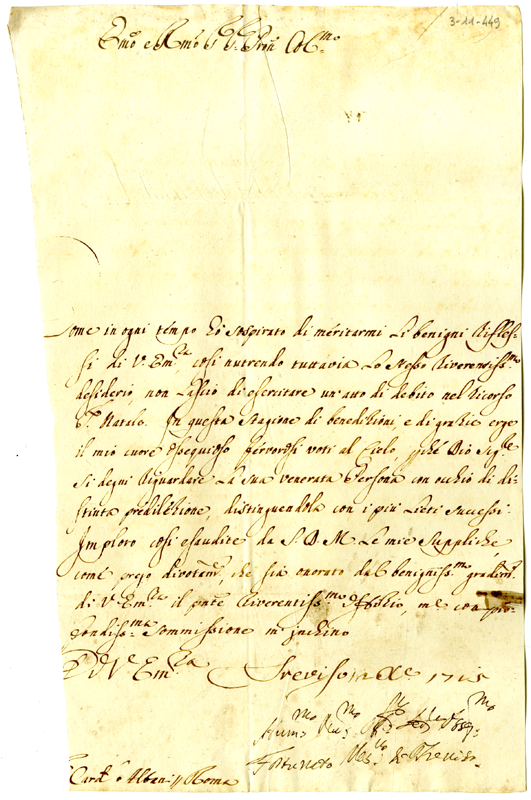 3-11-449
Emo e Rmo Sr Sr Pron Colmo
Come in ogni tempo hò sospirato di meritarmi li benigni Rifles-
si di V. Emza, così nutrendo tuttavia lo stesso riverentissmo
desiderio, non lascio di esercitare un'atto di debito nel ricorso
Sto Natale. In questa stagione di benedizioni, e di grazie erge
il mio cuore ossequioso fervorosi voti al Cielo, perché Dio Sigre
si degni riguardare la sua venerata Persona con occhio di di-
stinta predilezione, distinguendola con i più lieti successi.
Imploro così esaudite da S. D. M. le mie suppliche
come prego divotamte, che sia onorato dal benignissmo gradimto
di V. Emza il pnte riverentissmo offizio, me con pro-
fondissma sommissione m'inchino
D V. Emza
Treviso 12 Xbre
Fortunato Vesco di Treviso
Card Albani // Roma